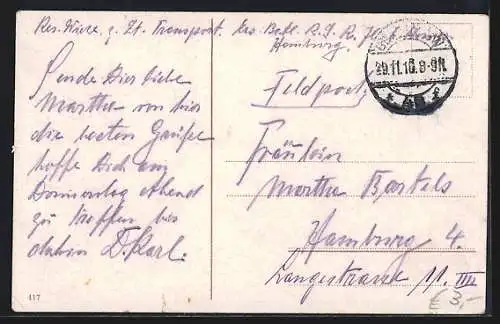 Res. Wiese, z. Zt. Transport. Ers. Batl. R. I. R.
Hamburg.
Feldpost
29.11.16.8-9N.
Sende Dir liebe
Martha von hier
die besten Grüße
hoffe Dich am
Donnerstag Abend
zu treffen bis
dahin D. Karl.
Fräulein
Martha Bartels
Hamburg 4.
Langestrasse III
417
€ 3,-